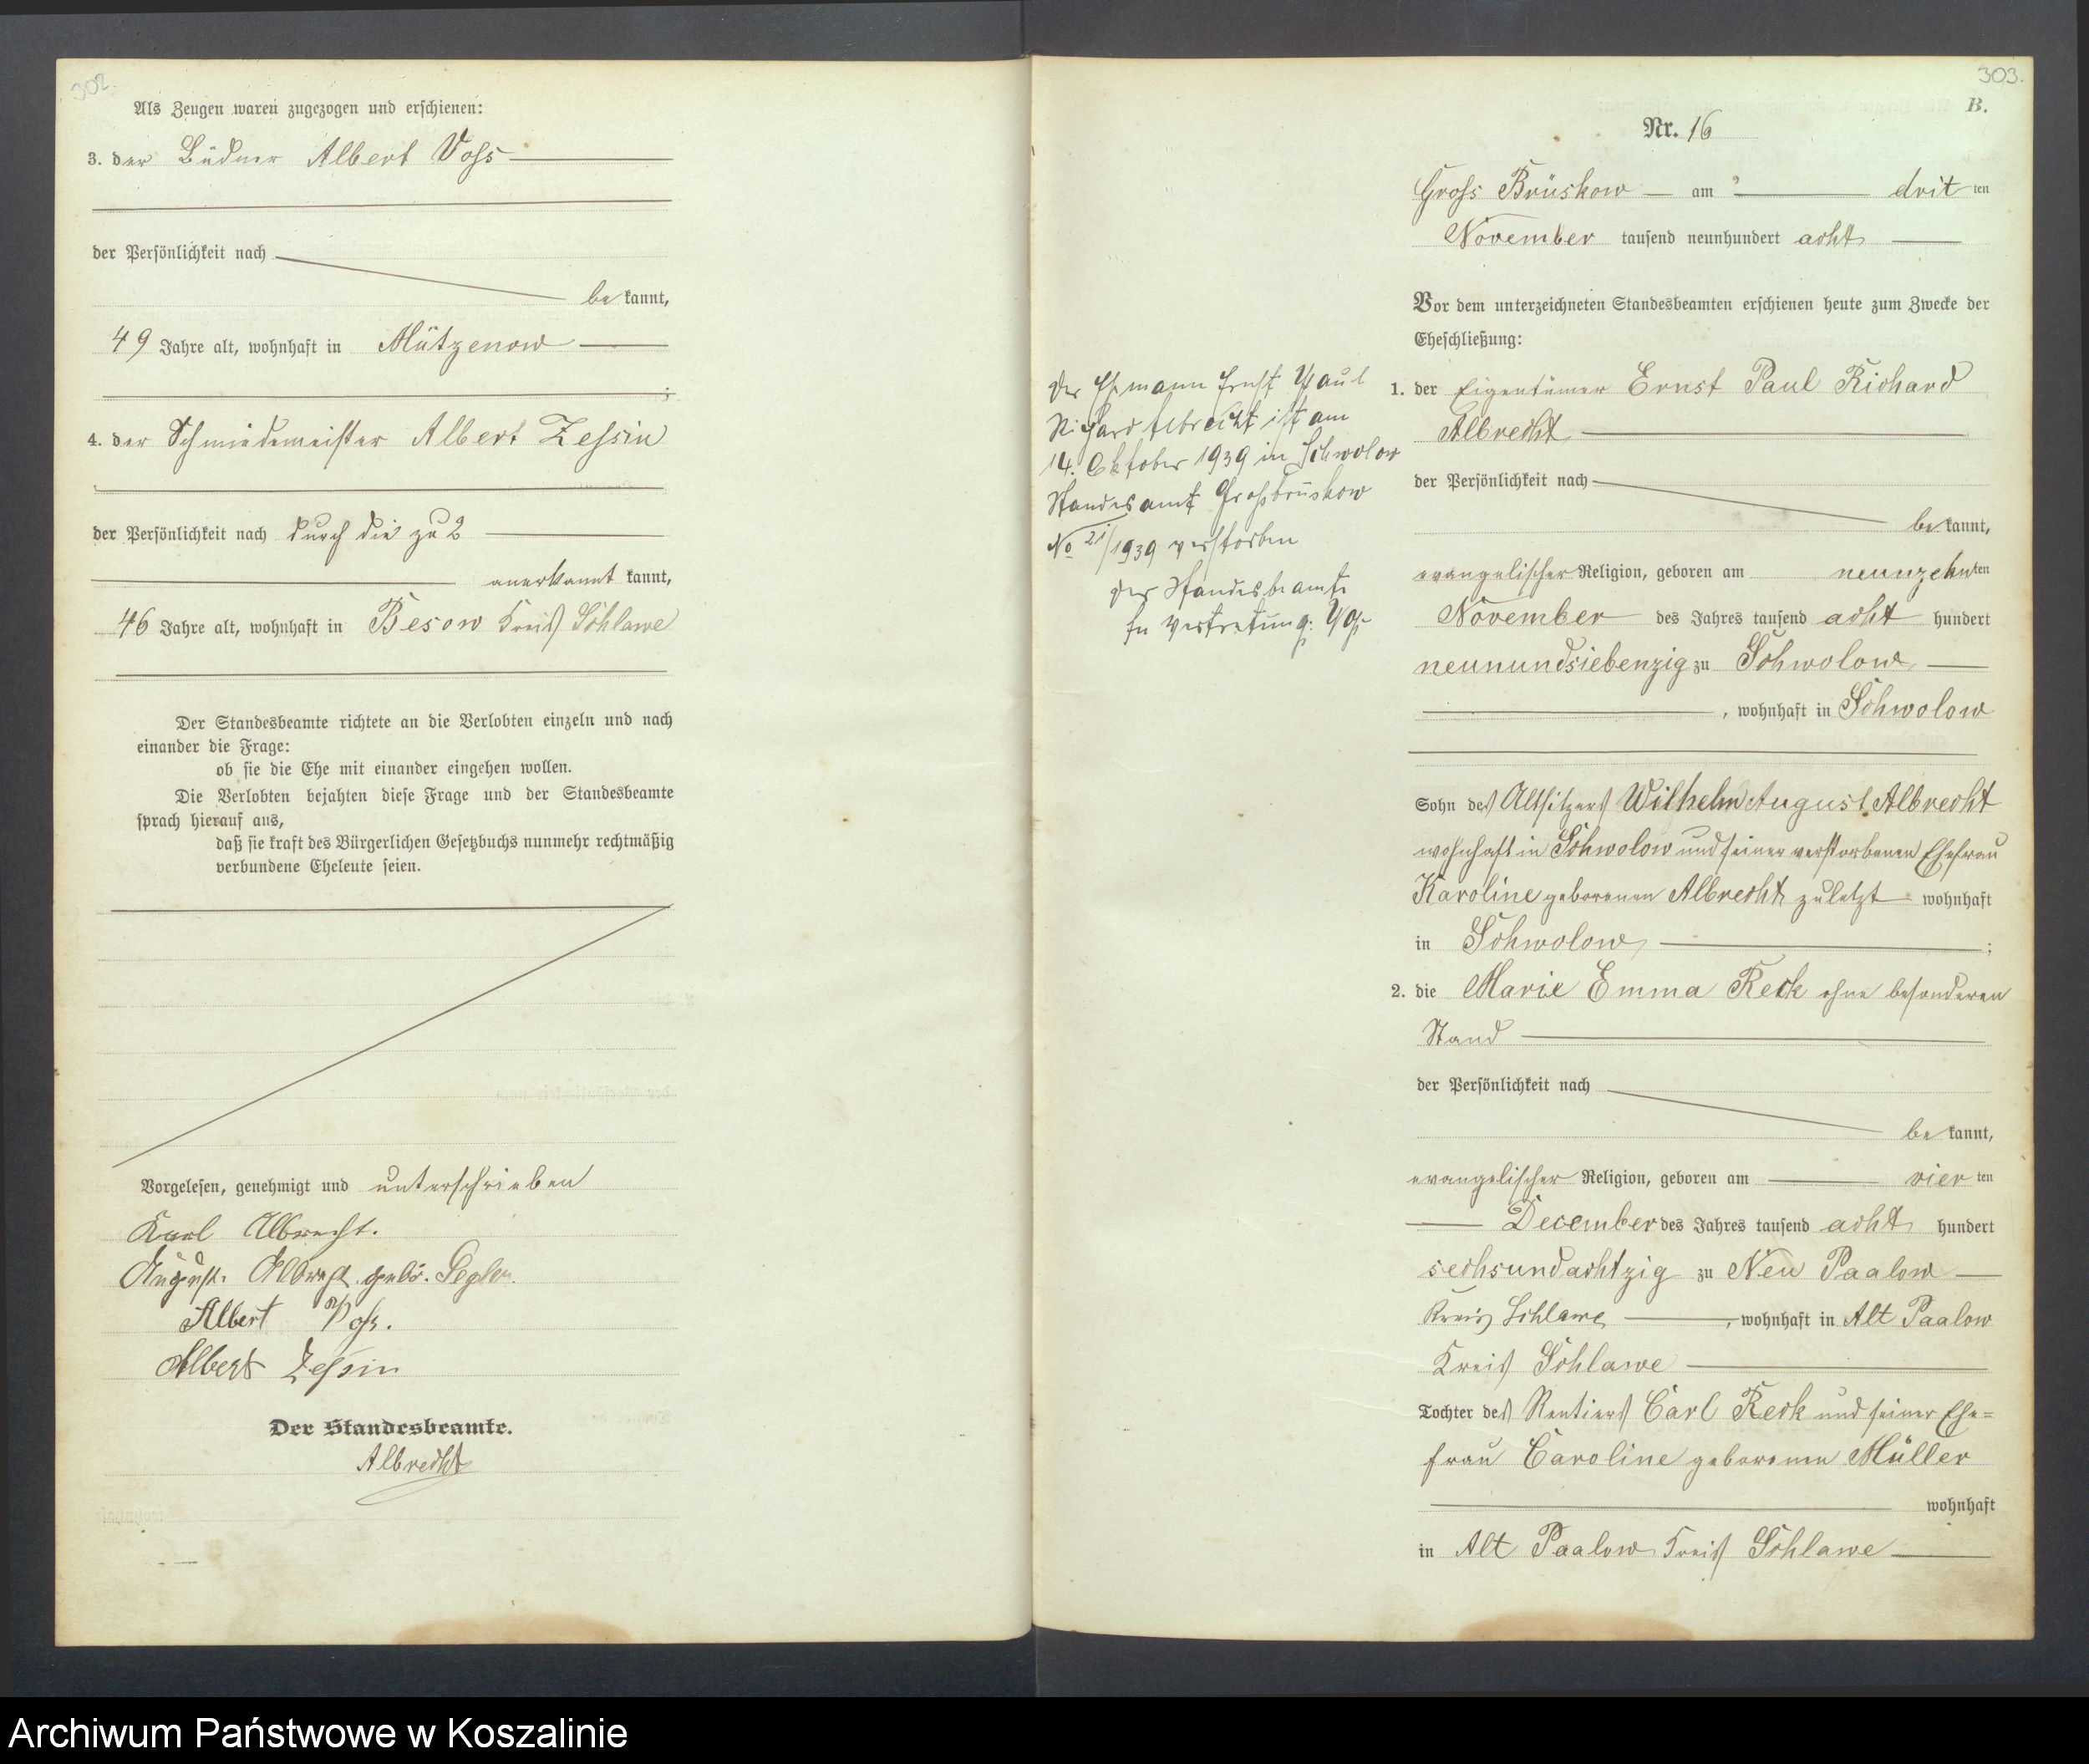 302.
Als Zeugen waren zugezogen und erschienen:
3. der Büdner Albert Voß
der Persönlichkeit nach
bekannt,
49 Jahre alt, wohnhaft in Mützenow
;
4. der Schmiedemeister Albert Zessin
der Persönlichkeit nach durch die zu 2
anerkannt kannt,
46 Jahre alt, wohnhaft in Besow Kreis Schlawe
Der Standesbeamte richtete an die Verlobten einzeln und nach
einander die Frage:
ob sie die Ehe mit einander eingehen wollen.
Die Verlobten bejahten diese Frage und der Standesbeamte
sprach hierauf aus,
daß sie kraft des Bürgerlichen Gesetzbuchs nunmehr rechtmäßig
verbundene Eheleute seien.
Vorgelesen, genehmigt und unterschrieben
Karl Albrecht.
Albrecht geb.
Albert Voß.
Albert Zessin
Der Standesbeamte.
Albrecht
303.
B.
Nr. 16
Gross Brüskow am dritten
November tausend neunhundert acht
Vor dem unterzeichneten Standesbeamten erschienen heute zum Zwecke der
Eheschließung:
1. der Eigentümer Ernst Paul Richard
Albrecht
der Persönlichkeit nach
bekannt,
evangelischer Religion, geboren am neunzehnten
November des Jahres tausend acht hundert
neunundsiebenzig zu Schwolow
, wohnhaft in Schwolow
Sohn des Altsitzers Wilhelm August Albrecht
wohnhaft in Schwolow und seiner verstorbenen Ehefrau
Karoline geborenen Albrecht zuletzt wohnhaft
in Schwolow ;
2. die Marie Emma Reck ohne besonderen
Stand
der Persönlichkeit nach
bekannt,
evangelischer Religion, geboren am vierten
December des Jahres tausend acht hundert
sechsundachtzig zu Neu Paalow
Kreis Schlawe, wohnhaft in Alt Paalow
Kreis Schlawe
Tochter des Rentiers Carl Reck und seiner Ehe=
frau Caroline geborenen Müller
wohnhaft
in Alt Paalow Kreis Schlawe
Der Ehemann Ernst Paul
Richard Albrecht ist am
14. Oktober 1939 in Schwolow
Standesamt Großbrüskow
No 21/1939 verstorben
Der Standesbeamte
In Vertretung:
Archiwum Państwowe w Koszalinie